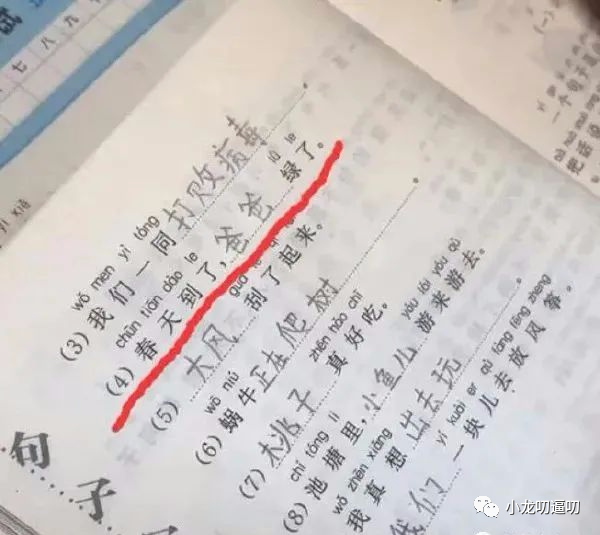 试
七 八 九
wǒ men yì tóng
(3) 我们一同打败病毒。
chūn tiān dào le lǜ le
(4) 春天到了,爸爸绿了。
(5) 大风刮了起来。
wō niú
(6) 蜗牛正在爬树。
zhēn hǎo chī
(7) 桃子真好吃。
chí táng lǐ yóu lái yóu qù
(8) 池塘里,小鱼儿游来游去。
wǒ zhēn xiǎng
我真想出去玩。
yí kuài er qù fàng fēng zheng
我们一块儿去放风筝。
句子
(一)
一个句子
把话
小龙叨逼叨